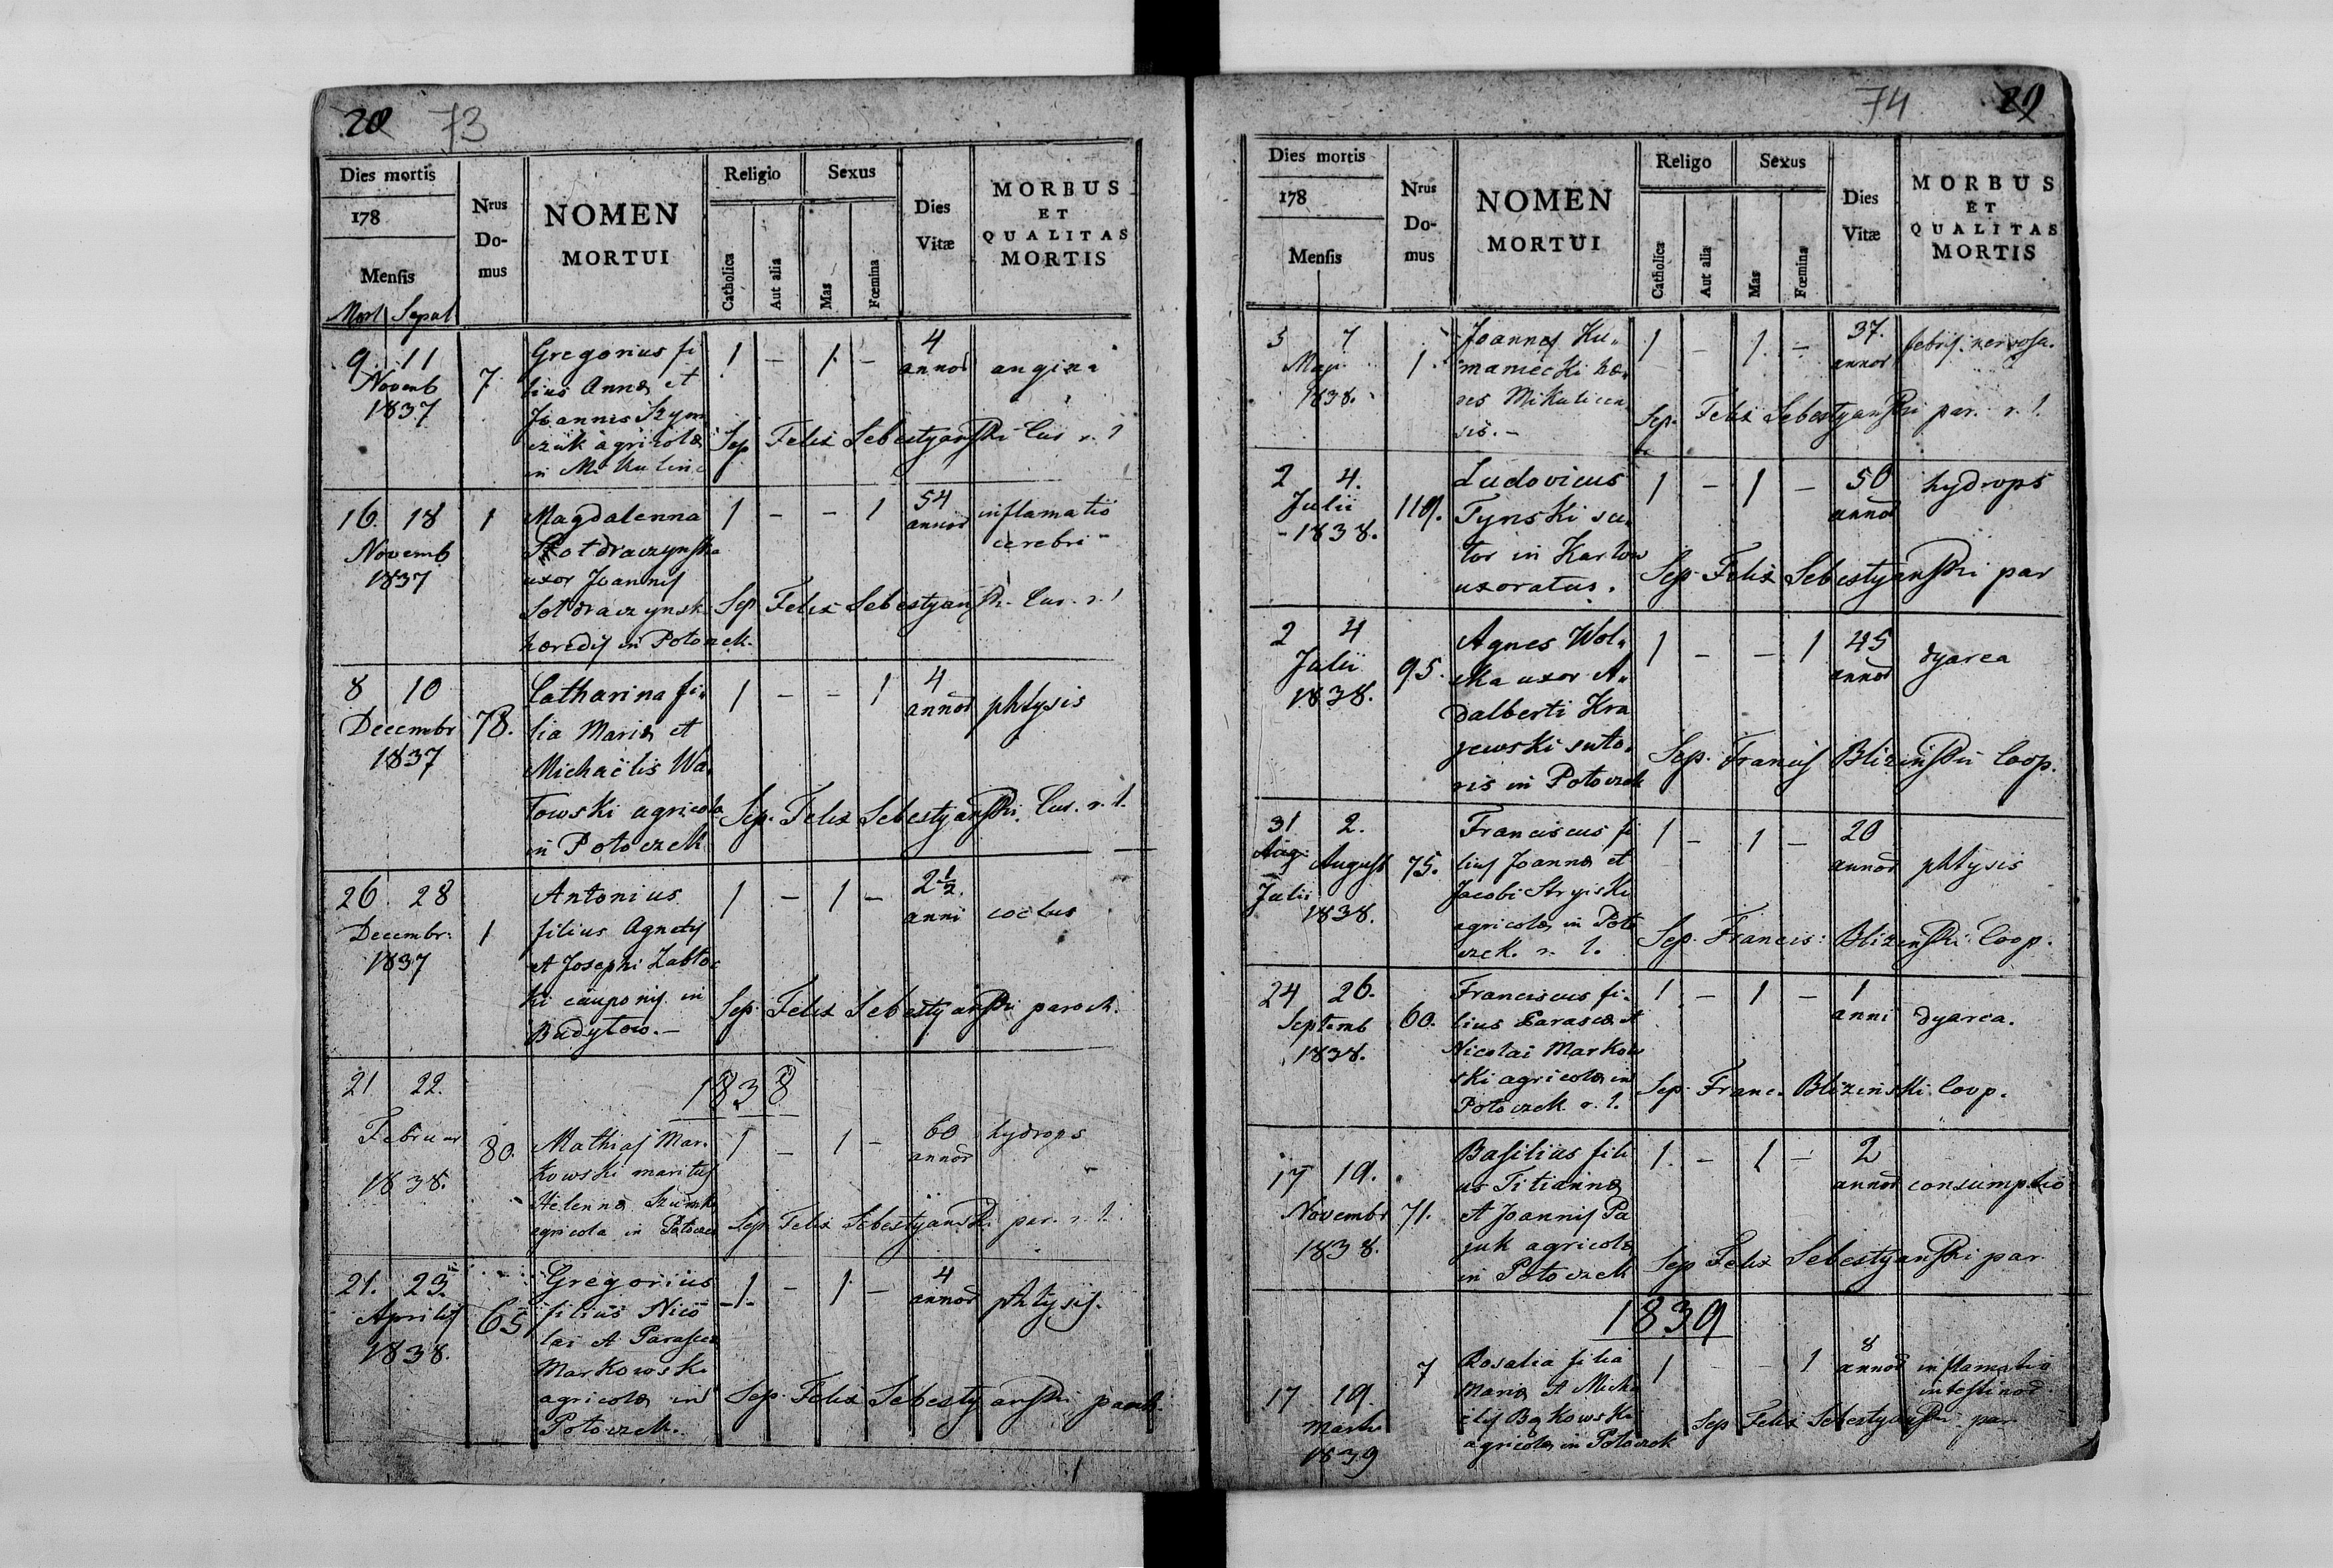 20 73
Dies mortis
178
Mensis
Mort Sepul
Nrus
Do-
mus
NOMEN
MORTUI
Religio
Catholica
Aut alia
Sexus
Mas
Fœmina
Dies
Vitæ
MORBUS
ET
QUALITAS
MORTIS
9. 11
Novemb
1837
7
Gregorius fi
lius Annæ et
Joannis Szym
czuk agricolæ
in Mikulin
1 - 1 -
4
annor
angina
Sep Felix Sebestyanski Cur. r. l
16. 18
Novemb
1837
1
Magdalenna
uxor Joannis
hæredis in Potoczek.
1 - - 1
54
annor
inflamatio
cerebri
Sep Felix Sebestyanski Cur. r. l
8 10
Decembr
1837
78.
Catharina fi„
lia Mariæ et
Michaëlis Wa„
towski agricolæ
in Potoczek
1 - - 1
4
annor
phtysis
Sep. Felix Sebestyanski. Cur. r. l.
26 28
Decembr:
1837
1
Antonius
filius Agnetis
et Josephi Zabłoc
ki cauponis in
Budyłow. -
1 - 1 -
2 1/2.
anni
coctus
Sep. Felix Sebestyanski paroch.
1838
21 22.
Februar
1838.
80.
Mathias Mar„
kowski maritus
Helennæ
agricola in Potoczek
1 - 1 -
60
annor
hydrops
Sep. Felix Sebestyanski par. r. l.
21. 23.
Aprilis
1838.
65
Gregorius
filius Nico
lai et Parascæ
Markowski
agricolæ in
Potoczek.
-1- - 1 -
4
annor
phtysis.
Sep. Felix Sebestyanski paroch.
74 29
Dies mortis
178
Mensis
Nrus
Do-
mus
NOMEN
MORTUI
Religo
Catholica
Aut alia
Sexus
Mas
Fœmina
Dies
Vitæ
MORBUS
ET
QUALITAS
MORTIS
5 7
Maji
1838.
1.
Joannes Ku„
maniecki hæ„
res Mikulicen
sis. -
1 - 1. -
37.
annor
febris nervosa.
Sep. Felix Sebestyanski par. r. l.
2 4.
Julii
- 1838.
119.
Ludovicus
Tynski su„
tor in Karlow
uxoratus.
1 - 1 -
50
annor
hydrops
Sep. Felix Sebestyanski par
2 4
Julii
1838.
95.
Agnes Wol„
ska uxor A„
dalberti Kra
jewski suto„
ris in Potoczek
1 - - 1
45
annor
dyarea
Sep. Francis Blizinski Coop.
31 2.
Aug. August
Julii
1838.
75.
Franciscus fi
lius Joannæ et
Jacobi Stryiski
agricolæ in Poto
czek. r. l.
1 - 1 -
20
annor
phtysis
Sep. Francis: Blizinski Coop.
24 26.
Septemb
1838.
60.
Franciscus fi„
lius Parascæ et
Nicolai Markow
ski agricolæ in
Potoczek r. l.
1 - 1 -
1
anni
dyarea.
Sep. Franc. Blizinski Coop.
17 19.
Novembr
1838.
71.
Basilius fili
us Titiannæ
et Joannis Pa
juk agricolæ
in Potoczek
1. - 1 -
2
annor
consumptio
Sep Felix Sebestyanski par
1839
17 19.
Martii
1839
7
Rosalia filia
Mariæ et Micha
elis Bąkowski
agricolæ in Potoczek
1 - 1
8
annor
inflamatio
intestinor.
Sep Felix Sebestyanski par